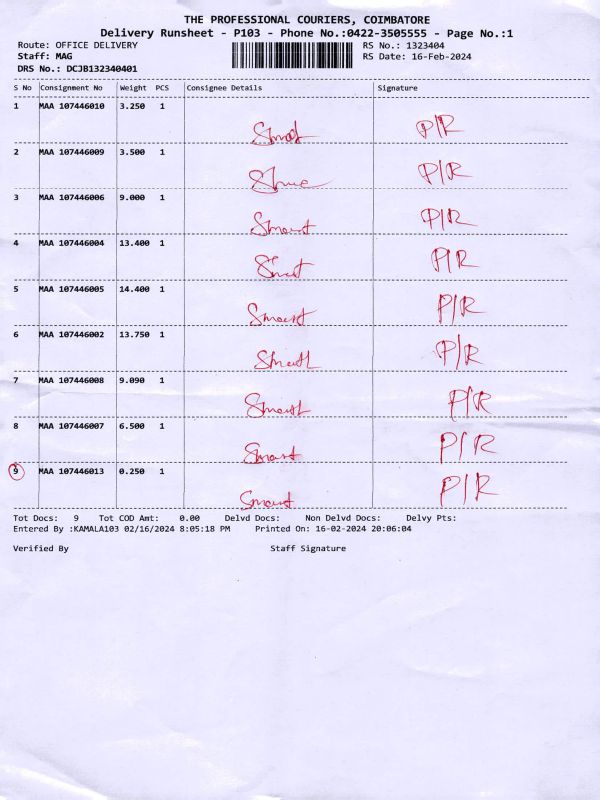 THE PROFESSIONAL COURIERS, COIMBATORE
Delivery Runsheet - P103 - Phone No.:0422-3505555 - Page No.:1
Route: OFFICE DELIVERY RS No.: 1323404
Staff: MAG RS Date: 16-Feb-2024
DRS No.: DCJB132340401
S No Consignment No Weight PCS Consignee Details Signature
1 MAA 107446010 3.250 1
P/R
2 MAA 107446009 3.500 1
P/R
3 MAA 107446006 9.000 1
Smart P/R
4 MAA 107446004 13.400 1
P/R
5 MAA 107446005 14.400 1
Smart P/R
6 MAA 107446002 13.750 1
P/R
7 MAA 107446008 9.090 1
Smart P/R
8 MAA 107446007 6.500 1
Smart P/R
9 MAA 107446013 0.250 1
Smart P/R
Tot Docs: 9 Tot COD Amt: 0.00 Delvd Docs: Non Delvd Docs: Delvy Pts:
Entered By :KAMALA103 02/16/2024 8:05:18 PM Printed On: 16-02-2024 20:06:04
Verified By Staff Signature